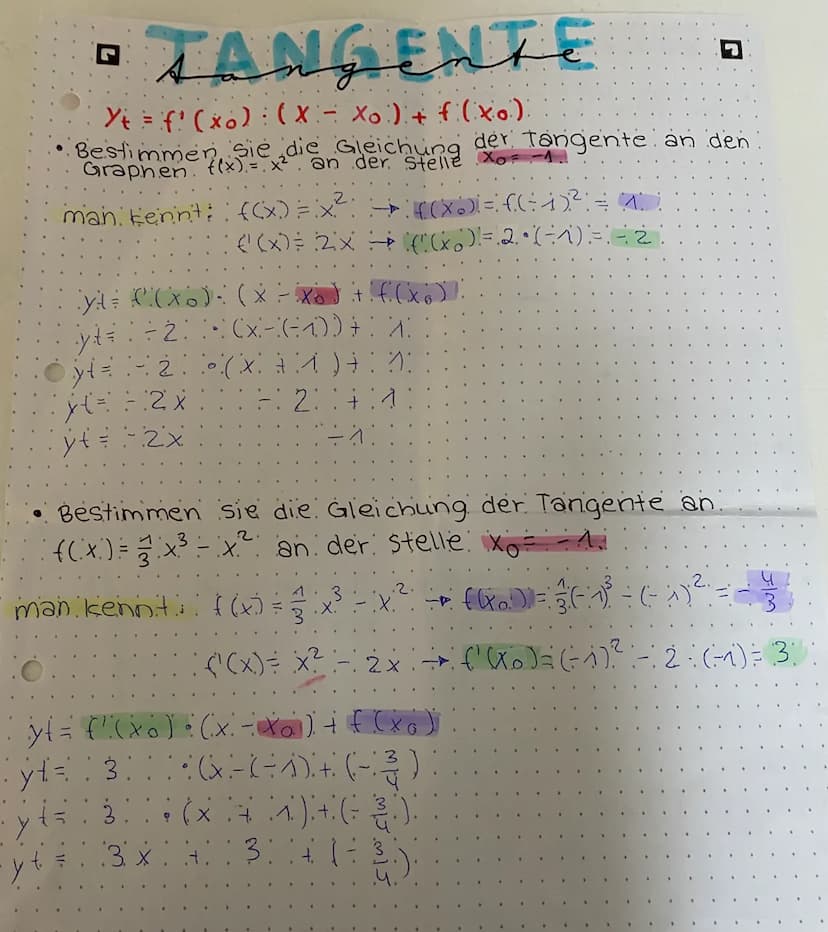 TANGENTE
tangente
yt = f'(x₀) · (x - x₀) + f(x₀)
• Bestimmen Sie die Gleichung der Tangente an den
Graphen f(x) = x² an der Stelle x₀ = -1.
man kennt: f(x) = x² → f(x₀) = f(-1)² = 1
f'(x) = 2x → f'(x₀) = 2 · (-1) = -2
yt = f'(x₀) · (x - x₀) + f(x₀)
yt = -2 · (x - (-1)) + 1
yt = -2 · (x + 1) + 1
yt = -2x - 2 + 1
yt = -2x - 1
• Bestimmen Sie die Gleichung der Tangente an
f(x) = 1/3 x³ - x² an der Stelle x₀ = -1.
man kennt: f(x) = 1/3 x³ - x² → f(x₀) = 1/3 (-1)³ - (-1)² = -4/3
f'(x) = x² - 2x → f'(x₀) = (-1)² - 2 · (-1) = 3
yt = f'(x₀) · (x - x₀) + f(x₀)
yt = 3 · (x - (-1) + (-3/4)
yt = 3 · (x + 1) + (-3/4)
yt = 3x + 3 + (-3/4)